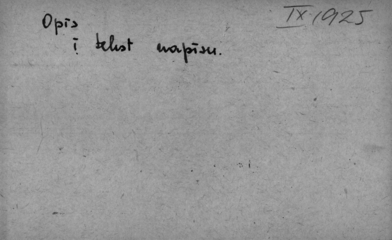 IX 1925
Opis
i tekst napisu.